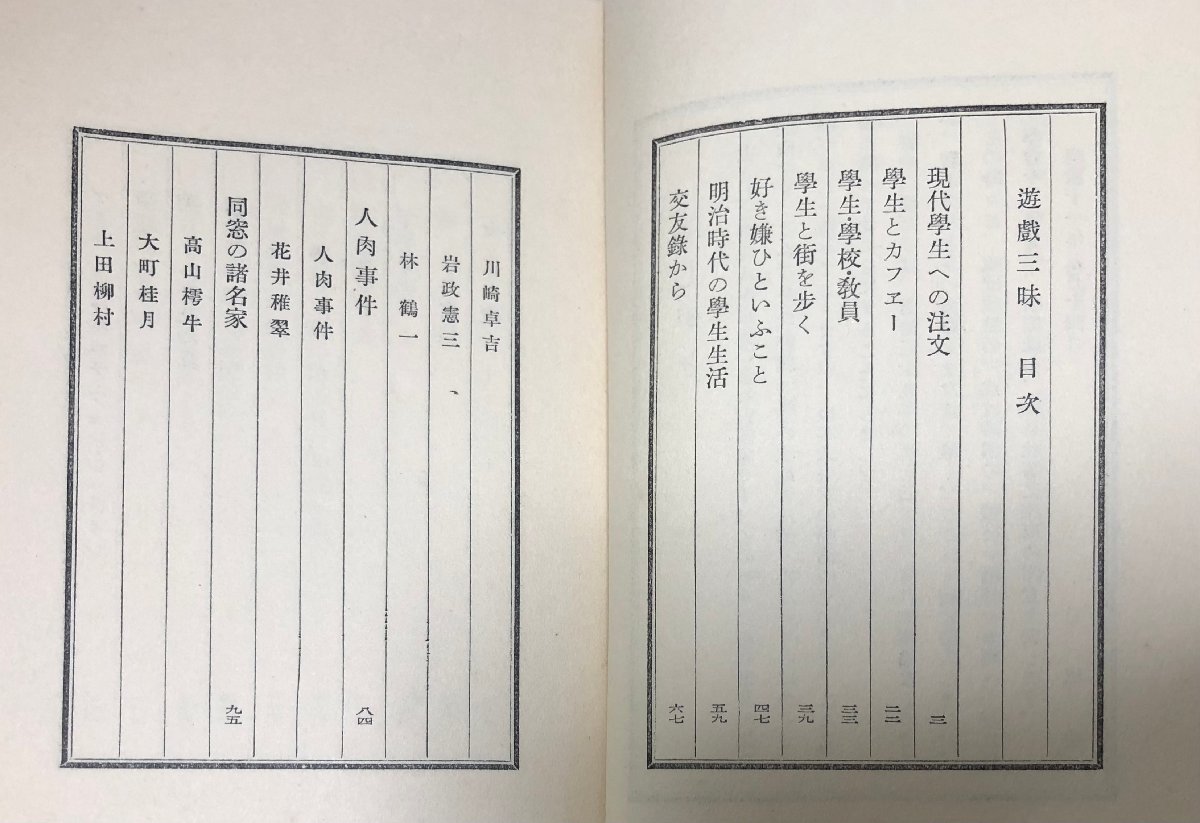 遊戲三昧　目次
現代學生への注文　三
學生とカフヱー　二二
學生・學校・教員　三三
學生と街を步く　三九
好き嫌ひといふこと　四七
明治時代の學生生活　五九
交友錄から　六七
川崎卓吉
岩政憲三、
林　鶴一
人肉事件　八四
人肉事件
花井稚翠
同窓の諸名家　九五
高山樗牛
大町桂月
上田柳村